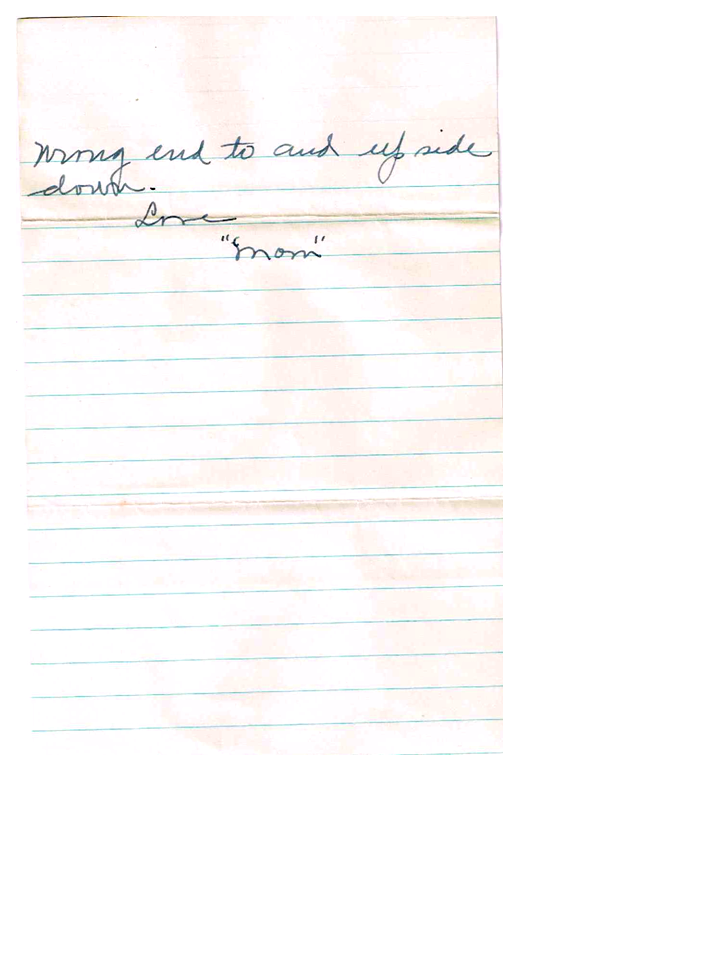 wrong end to and up side
down.
Love
"Mom"